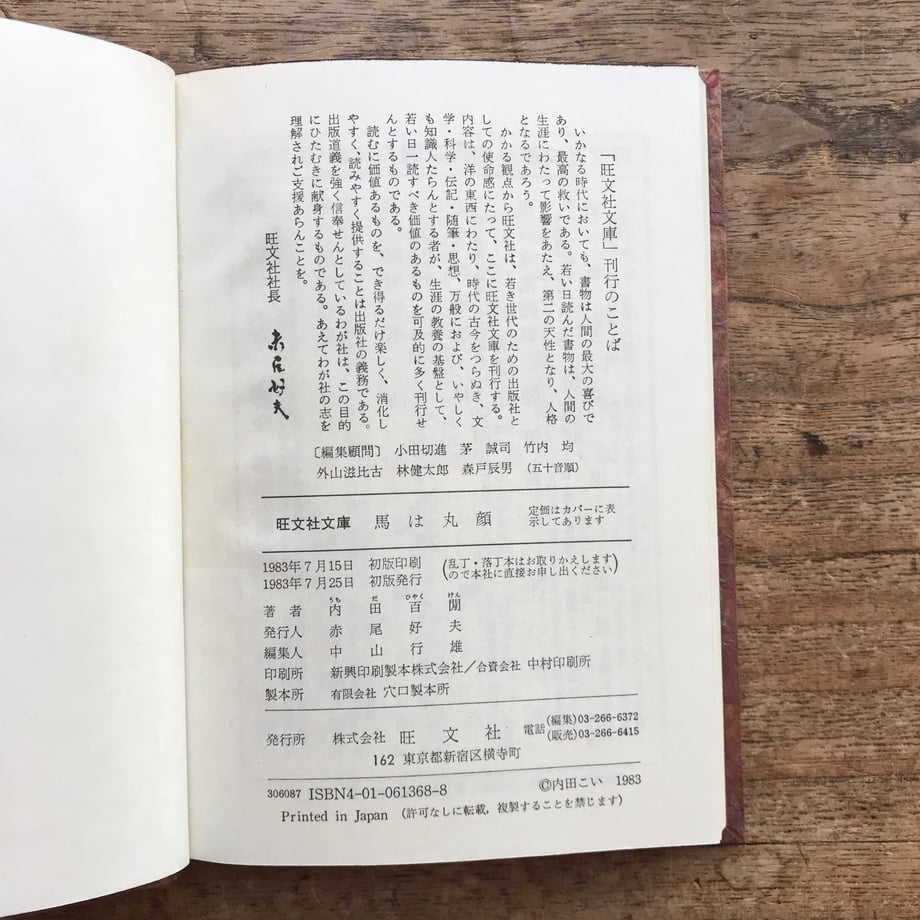 「旺文社文庫」刊行のことば
いかなる時代においても、書物は人間の最大の喜びで
あり、最高の救いである。若い日読んだ書物は、人間の
生涯にわたって影響をあたえ、第二の天性となり、人格
となるであろう。
かかる観点から旺文社は、若き世代のための出版社と
しての使命感にたって、ここに旺文社文庫を刊行する。
内容は、洋の東西にわたり、時代の古今をつらぬき、文
学・科学・伝記・随筆・思想、万般におよび、いやしく
も知識人たらんとする者が、生涯の教養の基盤として、
若い日一読すべき価値のあるものを可及的に多く刊行せ
んとするものである。
読むに価値あるものを、でき得るだけ楽しく、消化し
やすく、読みやすく提供することは出版社の義務である。
出版道義を強く信奉せんとしているわが社は、この目的
にひたむきに献身するものである。あえてわが社の志を
理解されご支援あらんことを。
旺文社社長 赤尾好夫
〔編集顧問〕 小田切進 茅 誠司 竹内 均
外山滋比古 林健太郎 森戸辰男 (五十音順)
旺文社文庫 馬は丸顔 定価はカバーに表
示してあります
1983年7月15日 初版印刷 (乱丁・落丁本はお取りかえします
1983年7月25日 初版発行 ので本社に直接お申し出ください)
うち だ ひやく けん
著者 内田百閒
発行人 赤尾好夫
編集人 中山行雄
印刷所 新興印刷製本株式会社/合資会社 中村印刷所
製本所 有限会社 穴口製本所
発行所 株式会社 旺文社 電話 (編集)03-266-6372
(販売)03-266-6415
162 東京都新宿区横寺町
306087 ISBN4-01-061368-8 ©内田こい 1983
Printed in Japan (許可なしに転載, 複製することを禁じます)